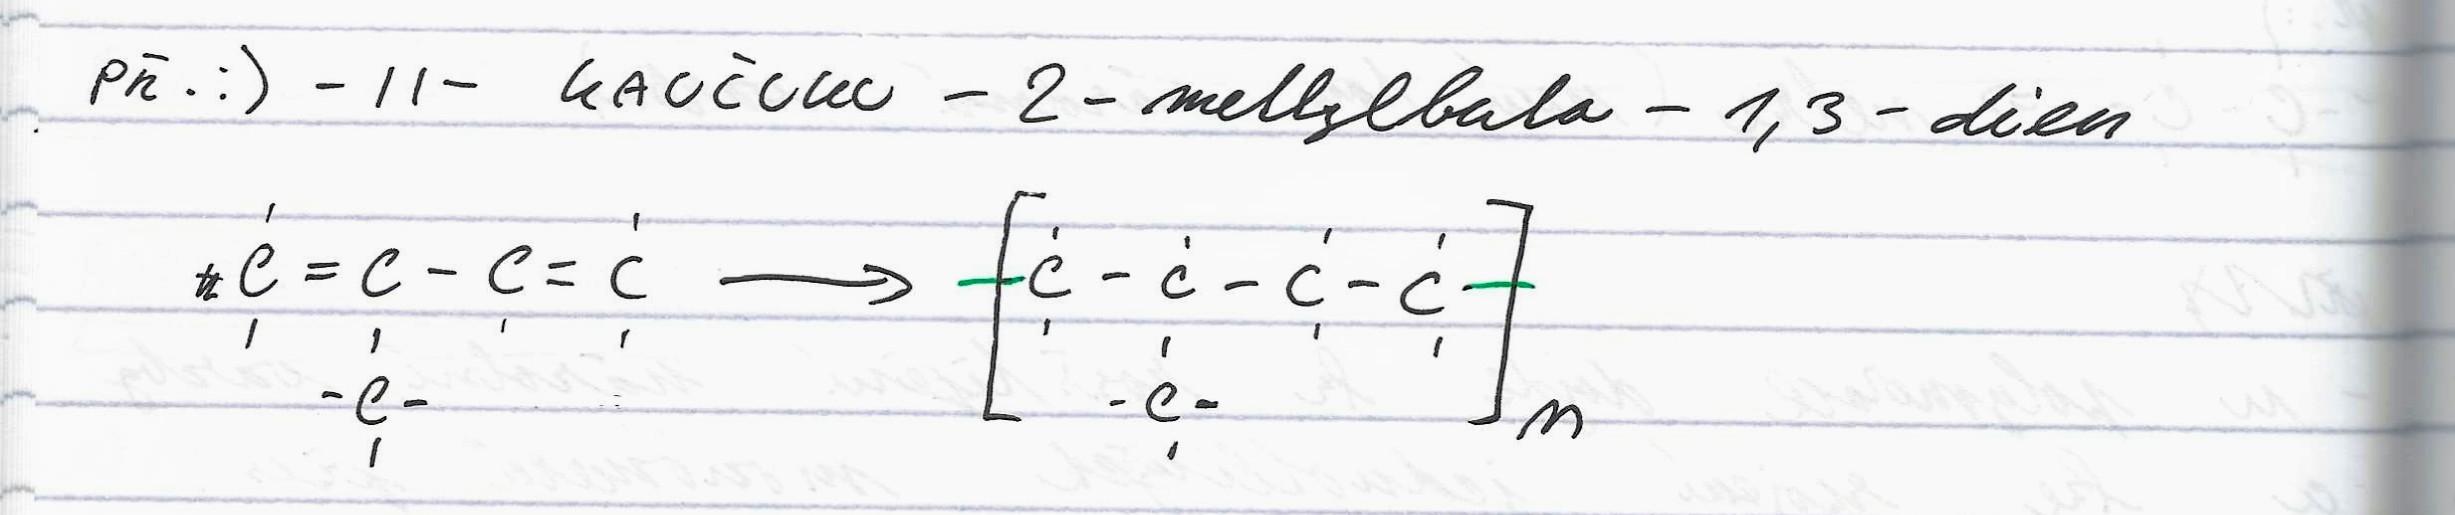 PŘ.:) -11- KAUČUKU - 2 - methylbuta - 1,3 - dien
n C = C - C = C ⟶ [ - C - C - C - C - ]n
- C - - C -